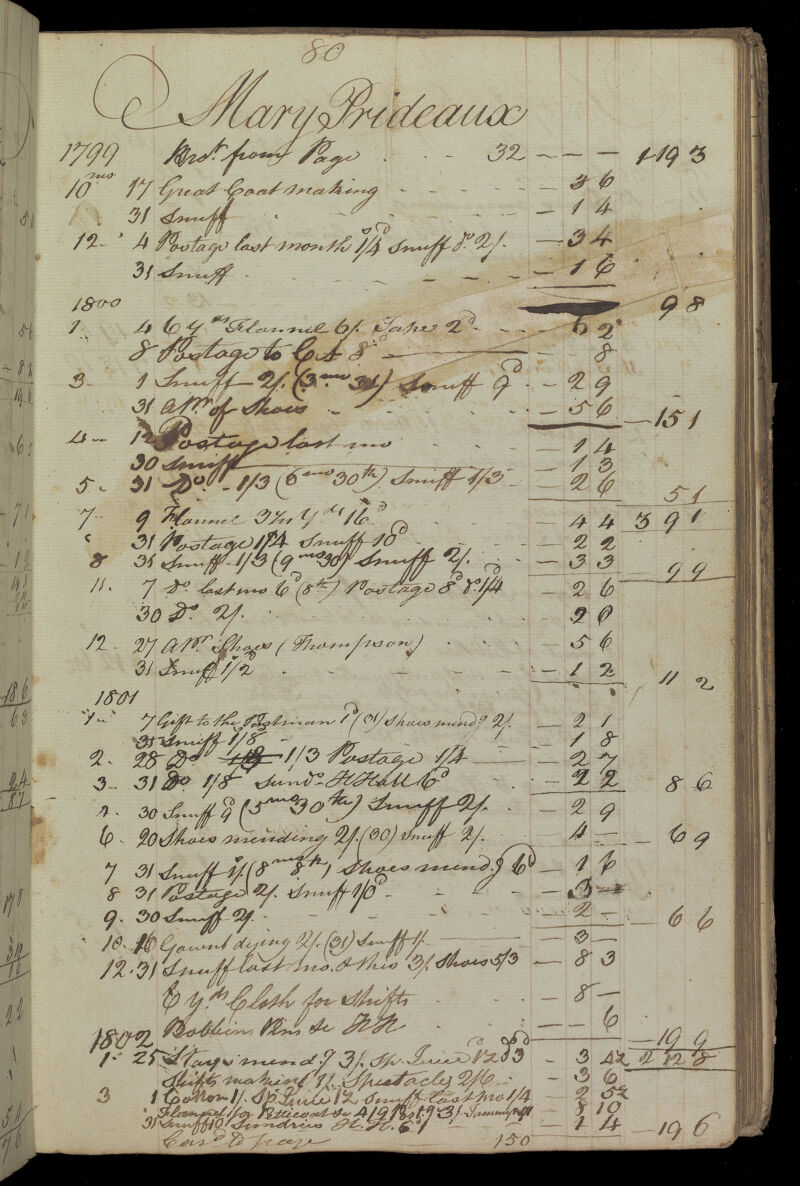 80
Mary Prideaux
1799 Brot. from Page 32 - - - 1 19 3
10mo 17 Great Coat making - 3 6
31 Snuff - 1 4
12 4 Postage last month 1/4 Snuff do. 2/. - 3 4
31 Snuff - 1 6
1800 9 8
1 4 6 yds Flannel 6/. Tape 2d - 6 2
8 Postage to 8d - 8
3 1 Snuff 2/. (3mo 31) Snuff 9d - 2 9
31 a Pr. of Shoes - 5 6 - 15 1
4 12 Postage last mo - 1 4
30 Snuff - 1 3
5 31 Do - 1/3 (6mo 30th) Snuff 1/3 - 2 6 5 1
7 9 Flannel yds 16d - 4 4 3 9 1
31 Postage 1/4 Snuff 10d - 2 2
8 31 Snuff 1/3 (9mo 30) Snuff 2/. - 3 3 9 9
11 7 Do. last mo 6d (8th) Postage 8d & 1/4 - 2 6
30 Do 2/. 2 0
12 27 a Pr. Shoes (Thompson) - 5 6
31 Snuff 1/2 - 1 2 11 2
1801
1 7 Gift to the Postman 1d (31) Shoes mendg 2/. - 2 1
31 Snuff 1/8 - 1 8
2 28 Do 1/3 Postage 1/4 - 2 7
3 31 Do 1/8 Sunds. H Hall 6d - 2 2 8 6
4 30 Snuff 9d (5mo 30th) Snuff 2/. - 2 9
6 20 Shoes mending 2/. (30) Snuff 2/. - 4 - 6 9
7 31 Snuff 1/. (8mo 8th) Shoes mendg 6d - 1 6
8 31 Postage 2/. Snuff 1/0d - 3 -
9 30 Snuff 2/. - 2 - 6 6
10 16 Gownd dying 2/. (31) Snuff 1/. - 3 -
12 31 Snuff last mo. & this 3/. Shoes 5/3 - 8 3
yds Cloth for Shifts - 8 -
Bobbins Pins &c HH - - 6 - 19 9
1802
1 25 Stays mendg 3/. Sp. Juice - 3 2 12 8
Shifts making 1/. Spectacles 2/6 - 3 6
3 1 Cotton 1/. Sp. Juice Snuff last mo 1/4 - 2
Flannel for Petticoat &c - 8 10
31 Snuff 10d Sundries H. H. 6d - 1 4 - 19 6
Card. to page 150